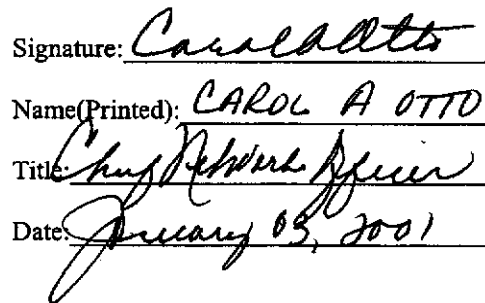 Signature: Carol A Otto
Name(Printed): CAROL A OTTO
Title: Chief Network Officer
Date: January 03, 2001